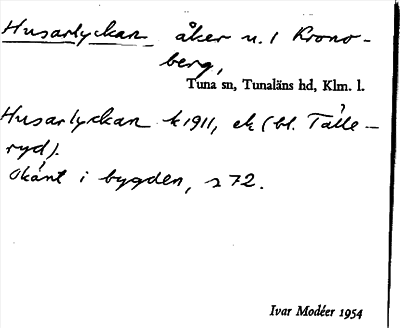 Husarlyckan åker n. 1 Krono-
berg,
Tuna sn, Tunaläns hd, Klm. l.
Husarlyckan k 1911, ek (bl. Tålle-
ryd).
Okänt i bygden, s 72.
Ivar Modéer 1954